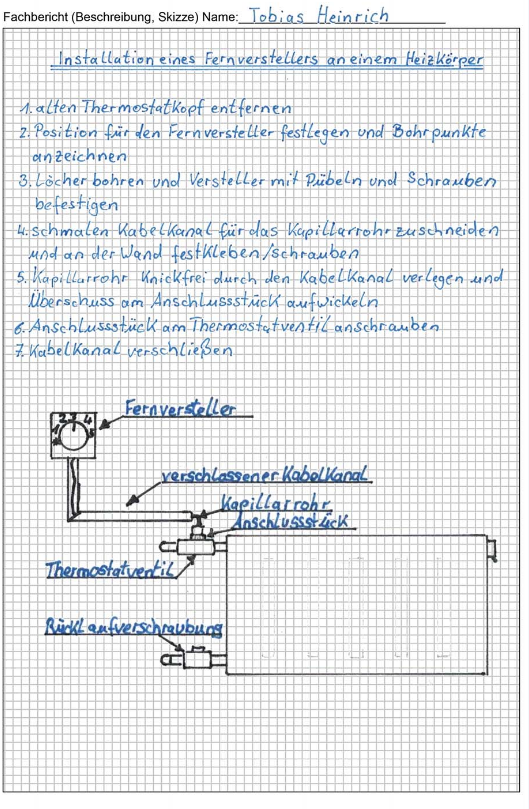 Fachbericht (Beschreibung, Skizze) Name: Tobias Heinrich
Installation eines Fernverstellers an einem Heizkörper
1. alten Thermostatkopf entfernen
2. Position für den Fernversteller festlegen und Bohrpunkte
anzeichnen
3. Löcher bohren und Versteller mit Dübeln und Schrauben
befestigen
4. schmalen Kabelkanal für das Kapillarrohr zuschneiden
und an der Wand festkleben/schrauben
5. Kapillarrohr Knickfrei durch den Kabelkanal verlegen und
Überschuss am Anschlussstück aufwickeln
6. Anschlussstück am Thermostatventil anschrauben
7. Kabelkanal verschließen
Fernversteller
1 2 3 4 5
verschlossener Kabelkanal
Kapillarrohr
Anschlussstück
Thermostatventil
Rücklaufverschraubung